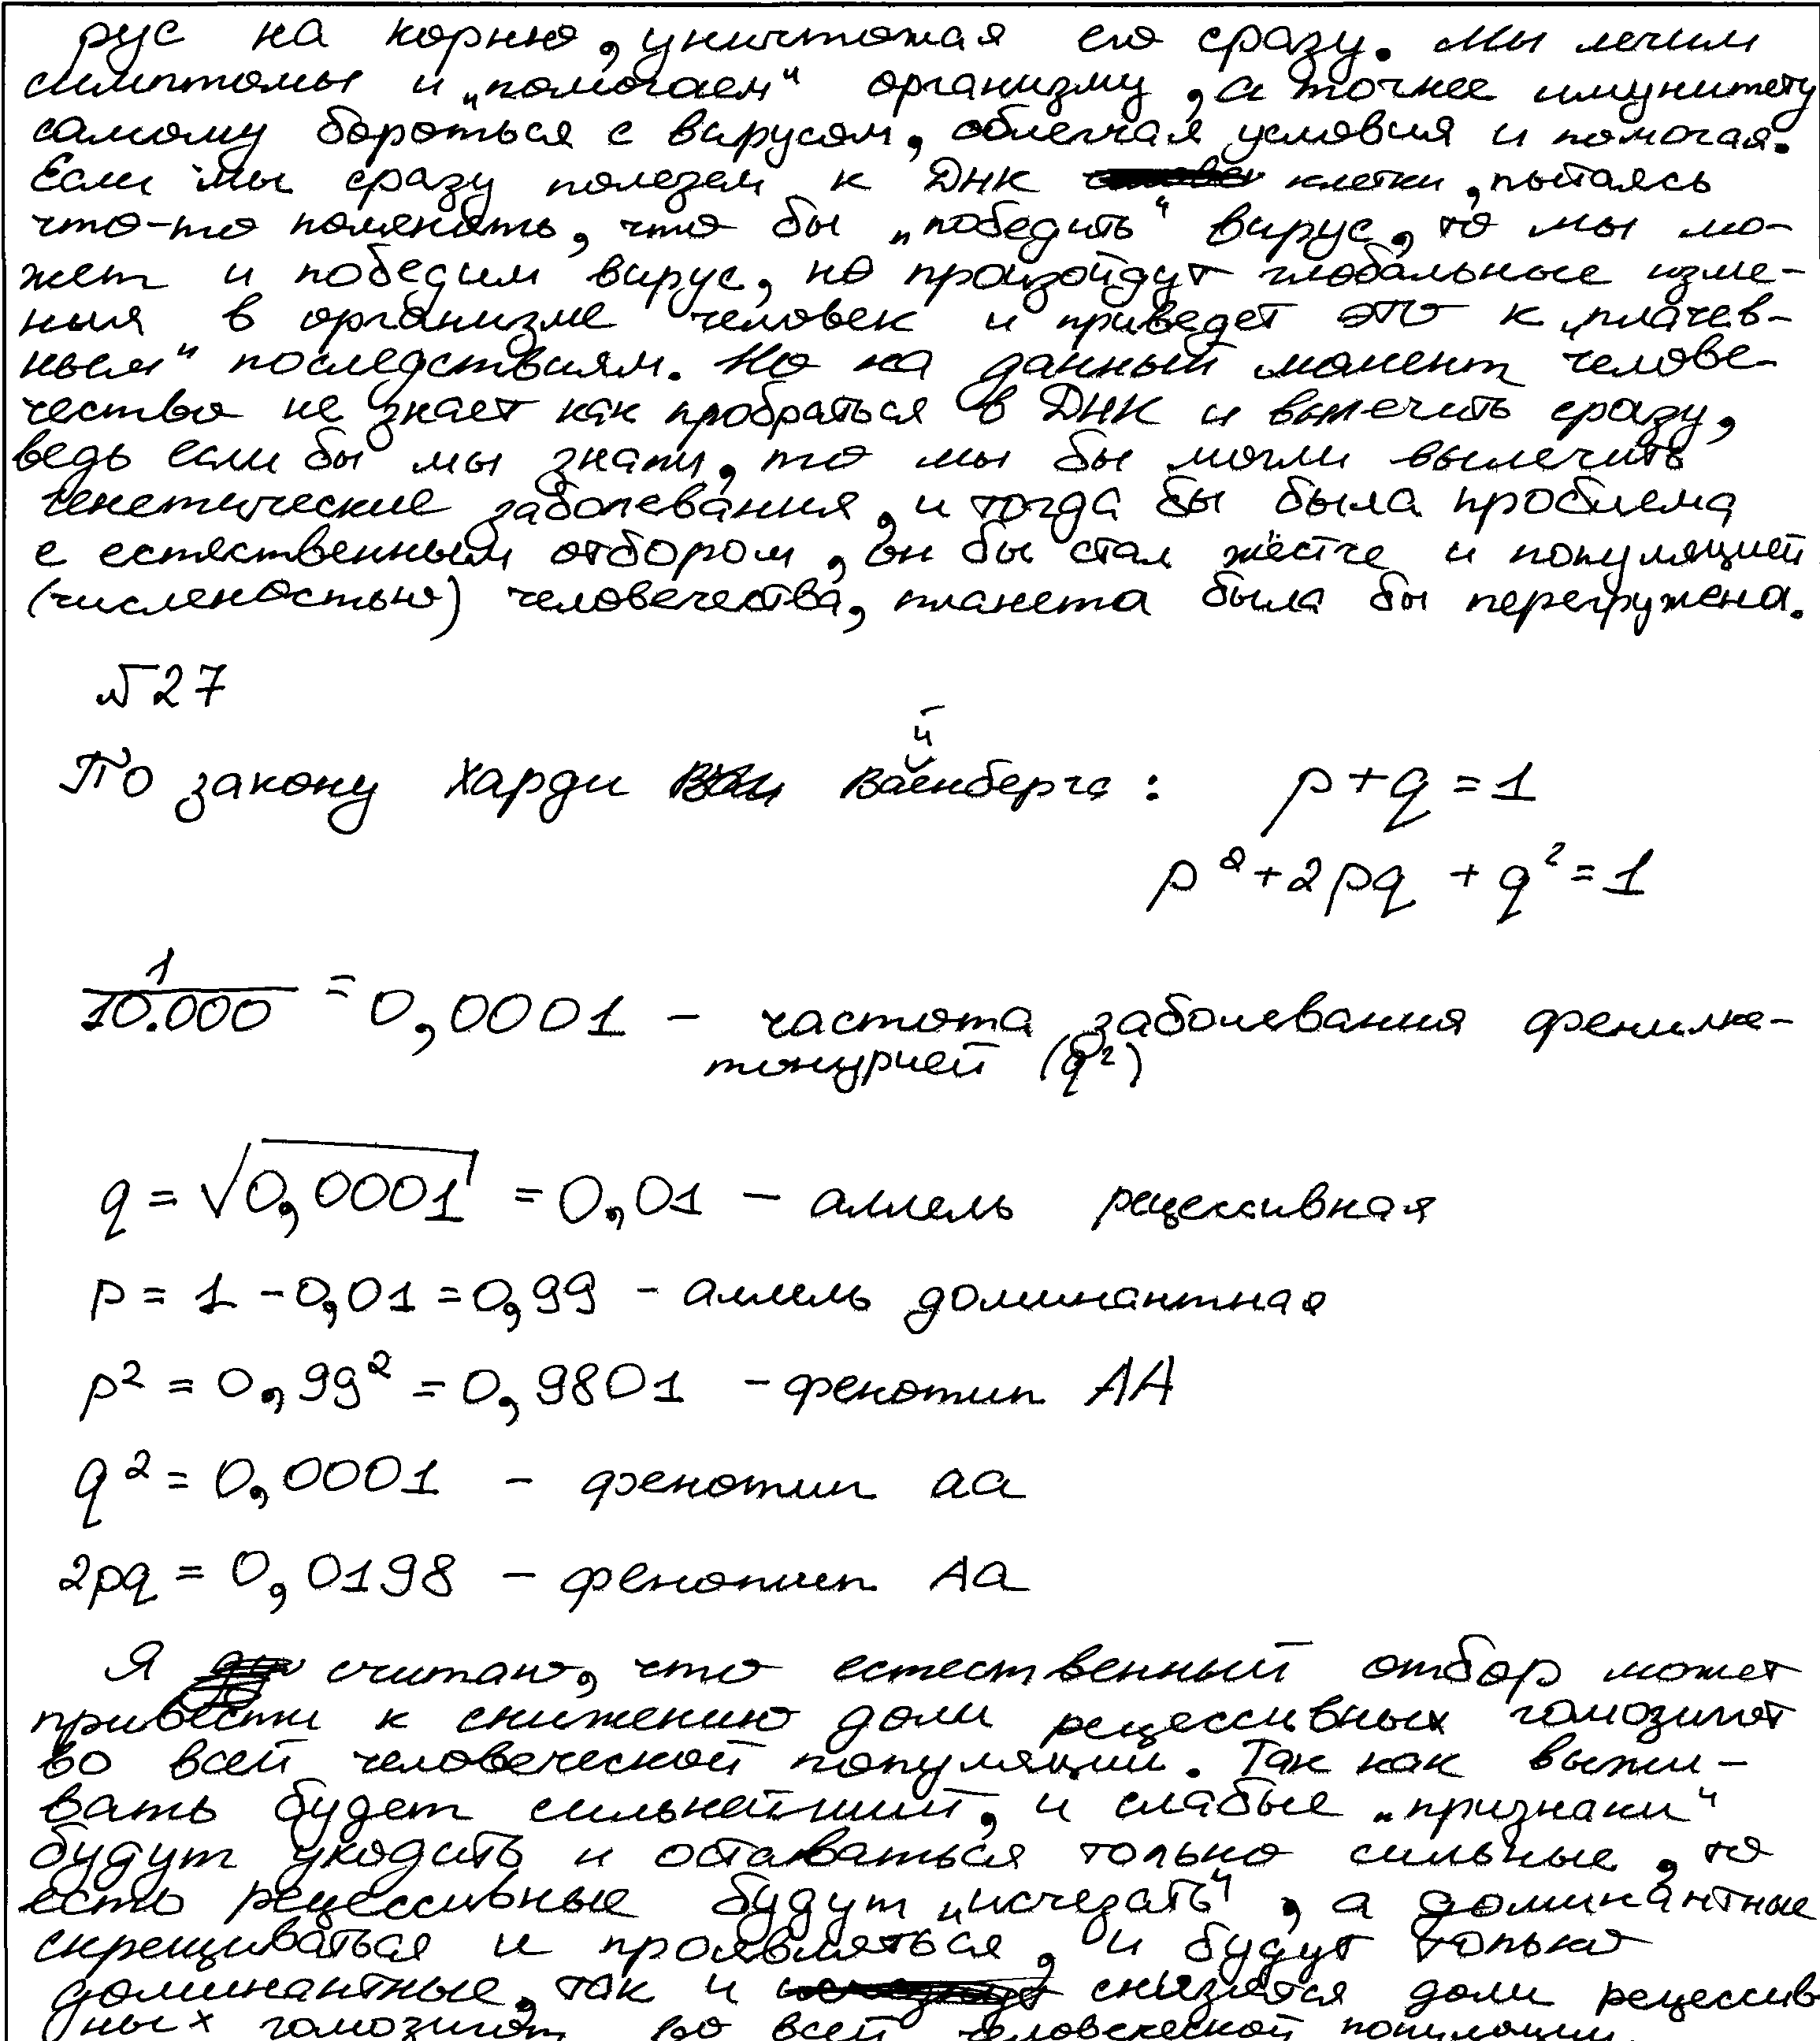 рус на корню, уничтожая его сразу. Мы лечим
симптомы и „помогаем“ организму, а точнее имунитету
самому бороться с вирусом, облегчая условия и помогая.
Если мы сразу полезем к ДНК клетки, пытаясь
что-то поменять, что бы „победить“ вирус, то мы мо-
жет и победим вирус, но произойдут глобальные изме-
ныя в организме человек и приведет это к „плачев-
ным“ последствиям. Но на данный момент челове-
чество не знает как пробраться в ДНК и вылечить сразу,
ведь если бы мы знали, то мы бы могли вылечить
генетические заболевания, и тогда бы была проблема
с естяственным отбором, он бы стал жёстче и популяцией
(численостью) человечества, планета была бы перегружена.
№27
По закону Харди Вайенберга: p+q=1
й
p²+2pq+q²=1
1/10.000 = 0,0001 – частота заболевания фенилке-
тонурией (q²)
q = √0,0001 = 0,01 – аллель рецессивная
p = 1 - 0,01 = 0,99 - аллель доминантная
p² = 0,99² = 0,9801 - фенотип AA
q² = 0,0001 - фенотип aa
2pq = 0,0198 - фенотип Aa
Я считаю, что естественный отбор может
привести к снижению доли рецессивных гомозигот
во всей человеческой популяции. Так как выжи-
вать будет сильнейший, и слабые „признаки“
будут уходить и оставаться только сильные, то
есть рецессивные будут „исчезать“, а доминантные
скрещиваться и проявляться, и будут только
доминантные, так и снизятся доли рецессив
ных гомозигот во всей человеческой популяции.